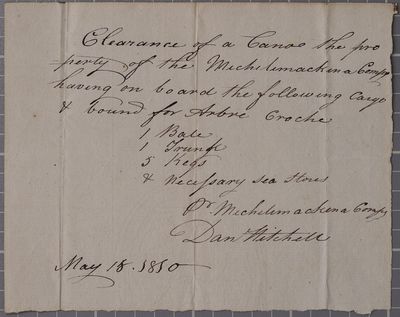 Clearance of a Canoe the pro
perty of the Michilimackina Compy
having on board the following Cargo
& bound for Arbre Croche
1 Bale
1 Trunk
5 Kegs
& necessary sea Stores
Pr Michilimackina Compy
Dan Mitchell
May 18. 1810